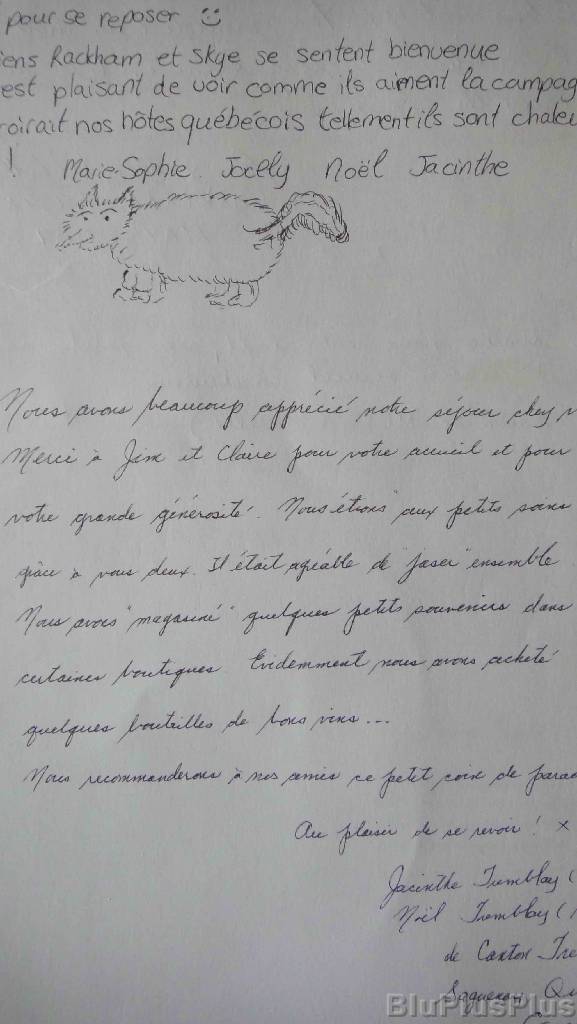 pour se reposer
iens Rackham et Skye se sentent bienvenue
est plaisant de voir comme ils aiment la campag
roirait nos hôtes québécois tellement ils sont chaleu
!
Marie-Sophie Jocely Noël Jacinthe
Nous avons beaucoup apprécié notre séjour chez v
Merci à Jim et Claire pour votre accueil et pour
votre grande générosité. Nous étions "aux petits soins
grâce à vous deux. Il était agréable de "jaser" ensemble.
Nous avons "magasiné" quelques petits souvenirs dans
certaines boutiques. Evidemment nous avons acheté
quelques bouteilles de bons vins...
Nous recommanderons à nos amis ce petit coin de parad
Au plaisir de se revoir! x
Jacinthe Tremblay (
Noël Tremblay (
de Canton Tre
Saguenay, Qu
BluPlusPlus